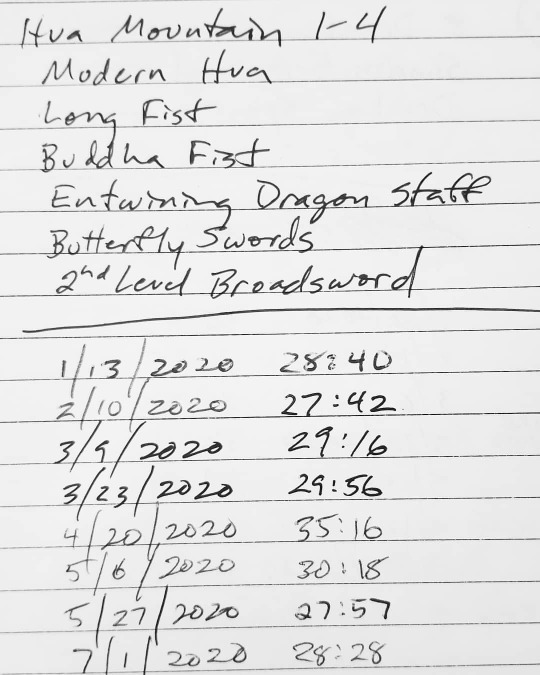 Hua Mountain 1-4
Modern Hua
Long Fist
Buddha Fist
Entwining Dragon Staff
Butterfly Swords
2nd Level Broadsword
1/13/2020 28:40
2/10/2020 27:42
3/9/2020 29:16
3/23/2020 29:56
4/20/2020 35:16
5/6/2020 30:18
5/27/2020 27:57
7/1/2020 28:28